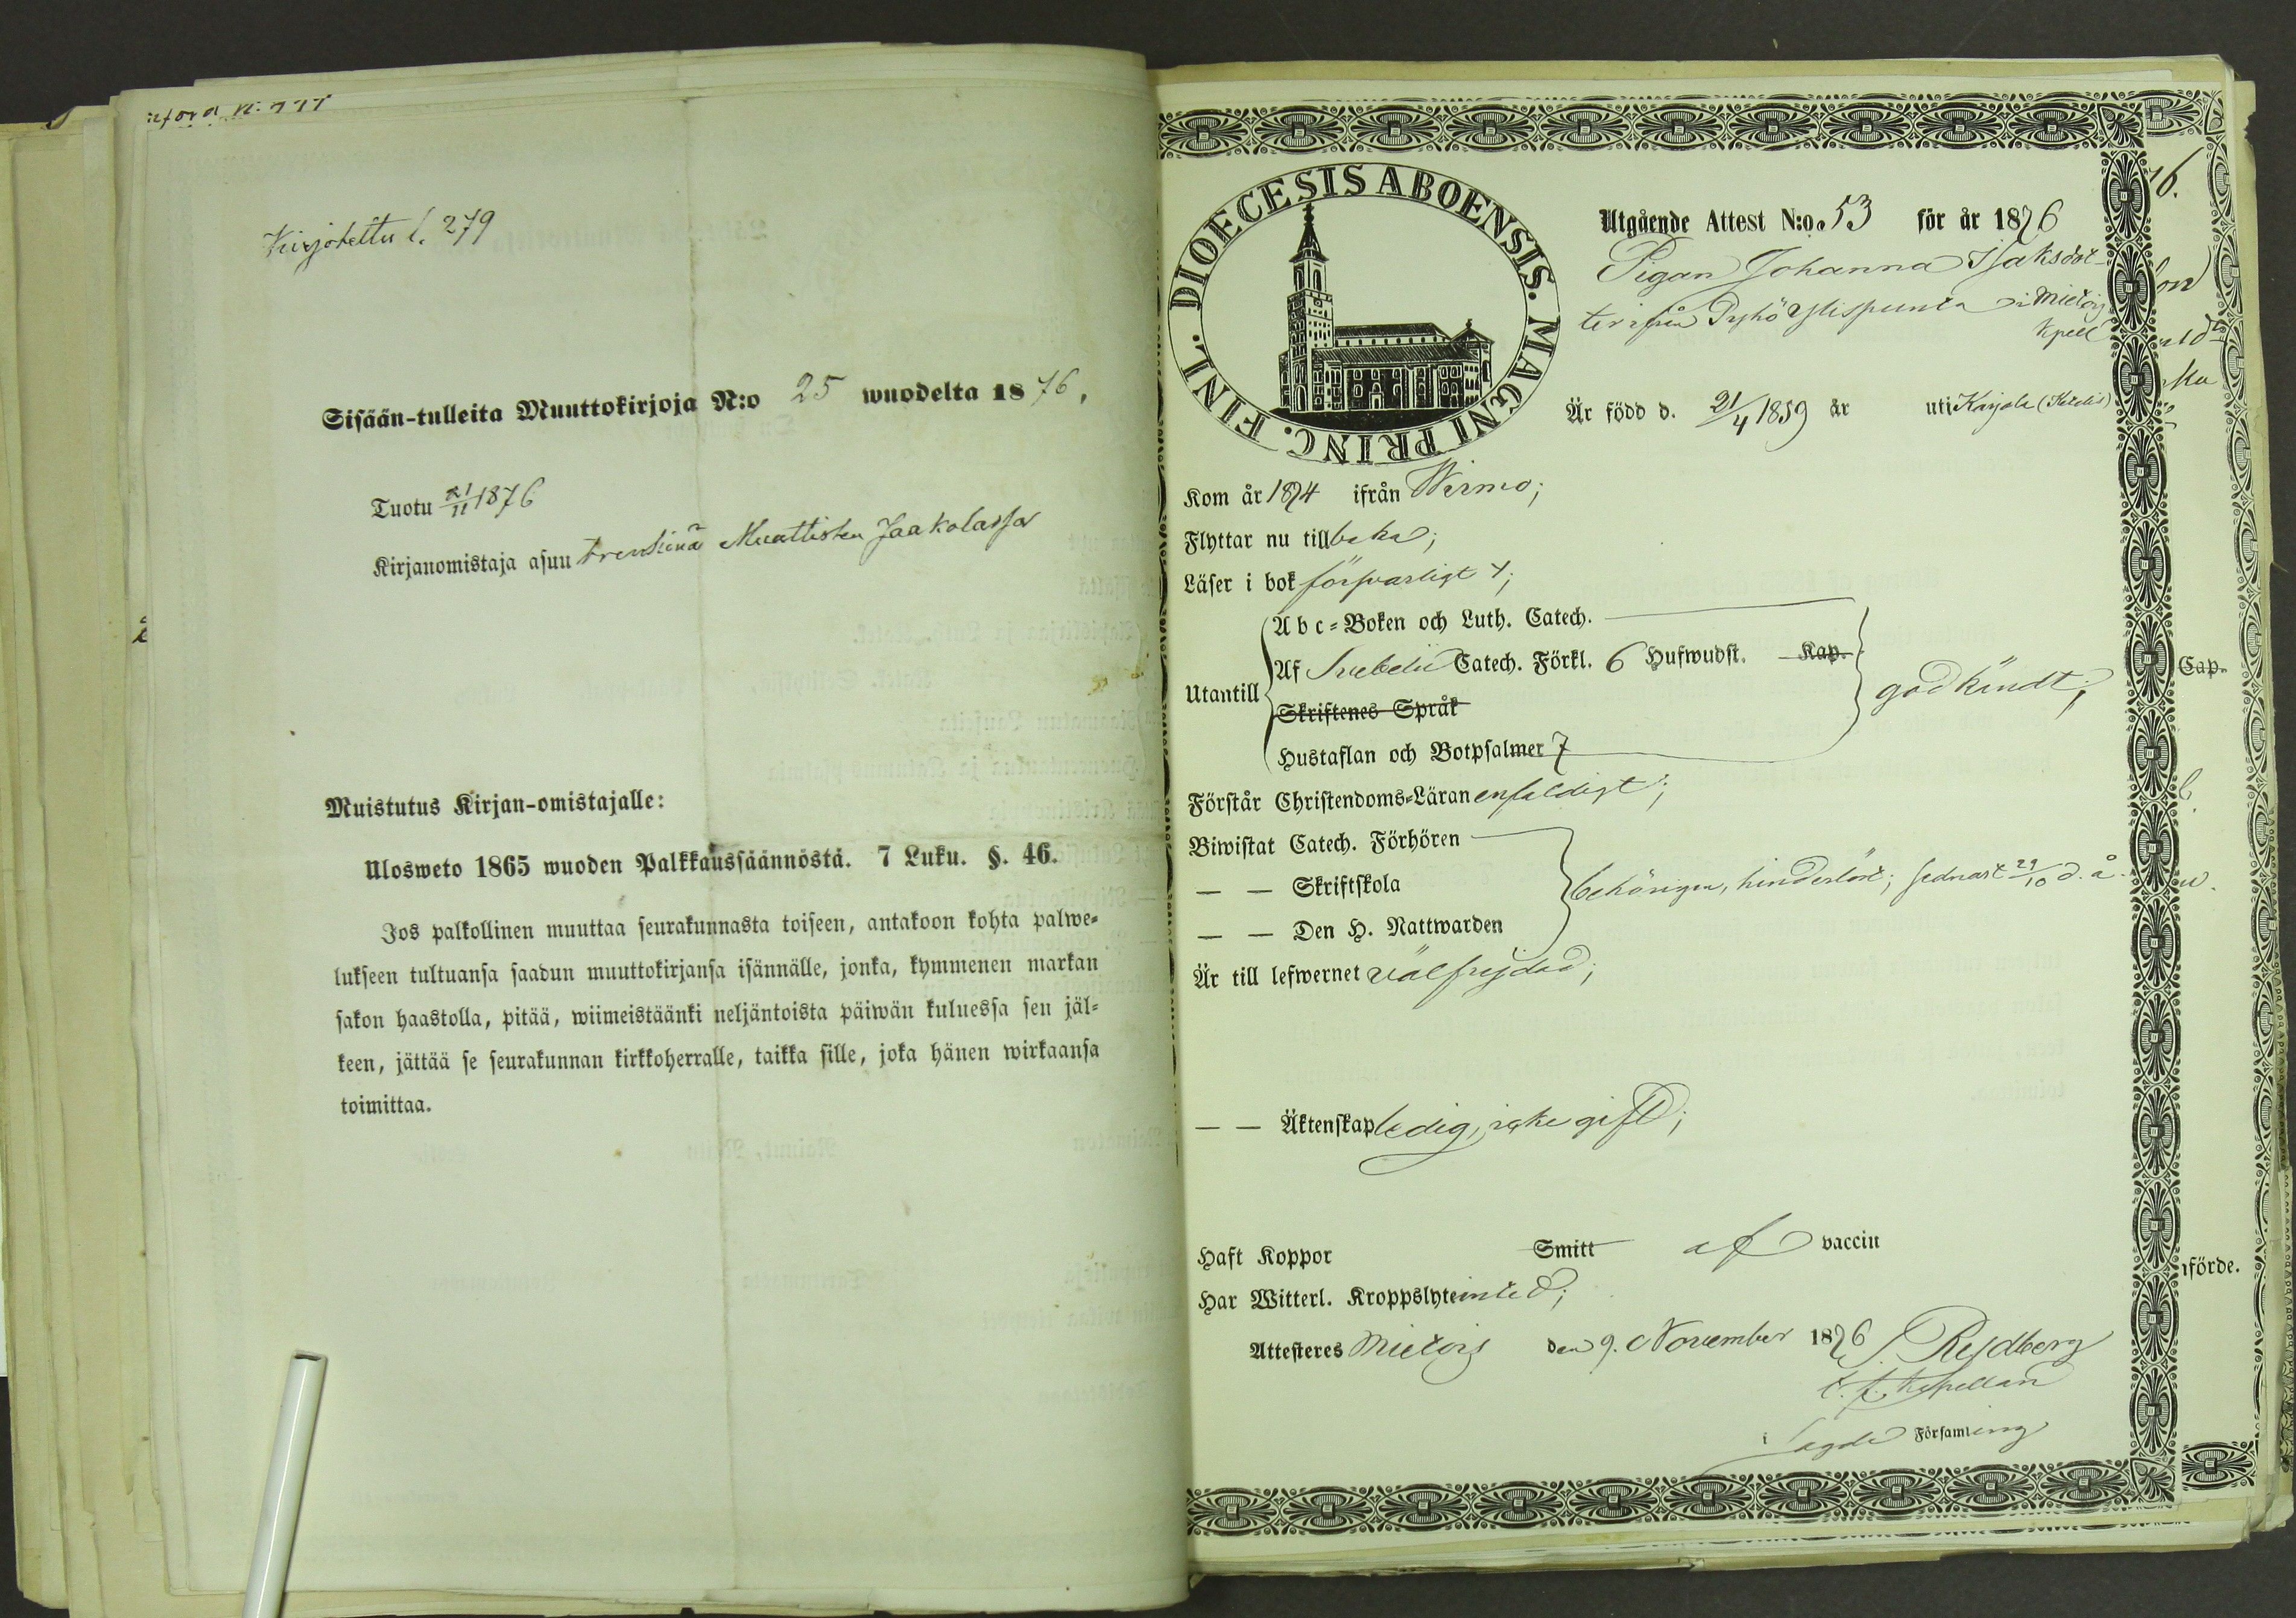 Kirjoitettu s. 279
Sisään-tulleita Muuttokirjoja N:o 25 wuodelta 1876.
Tuotu 21/11 1876
Kirjanomistaja asuu Trenkinä Muattisten Jaakolassa
Muistutus Kirjan-omistajalle:
Ulosweto 1865 wuoden Palkkaussäännöstä. 7 Luku. §. 46.
Jos palkollinen muuttaa seurakunnasta toiseen, antakoon kohta palwe-
lukseen tultuansa saadun muuttokirjansa isännälle, jonka, kymmenen markan
sakon haastolla, pitää, wiimeistäänki neljäntoista päiwän kuluessa sen jäl-
keen, jättää se seurakunnan kirkkoherralle, taikka sille, joka hänen wirkaansa
toimittaa.
DIOECESIS ABOENSIS. MAGNI PRINC. FINL.
Utgående Attest N:o 53 för år 1876
Pigan Johanna Isaksdot-
ter ifrån Pyhö Ylispunta i Mietois
Kpell
Är född d. 21/4 1859 år uti Karjala
Kom år 1874 ifrån Wirmo;
Flyttar nu tillbaka;
Läser i bok försvarligt +;
Abc-Boken och Luth. Catech.
Af Svebelii Catech. Förkl. 6 Hufwudst. Kap.
Utantill
godkändt;
Skriftenes Språk
Hustaflan och Botpsalmer 7
Förstår Christendoms-Läran enfaldigt;
Biwistat Catech. Förhören
— — Skriftskola
behörigen, hinderlöst; sednast 29/10 d. å.
— — Den H. Nattwarden
Är till lefwernet välfrejdad;
— — Äktenskap ledig, icke gift;
Haft Koppor Smitt af vaccin
Har Witterl. Kroppslyte inted;
Attesteres Mietois den 9. November 1876 J. Rydberg
t. f. Kapellan
i sagde Församling
Cap.
förde.